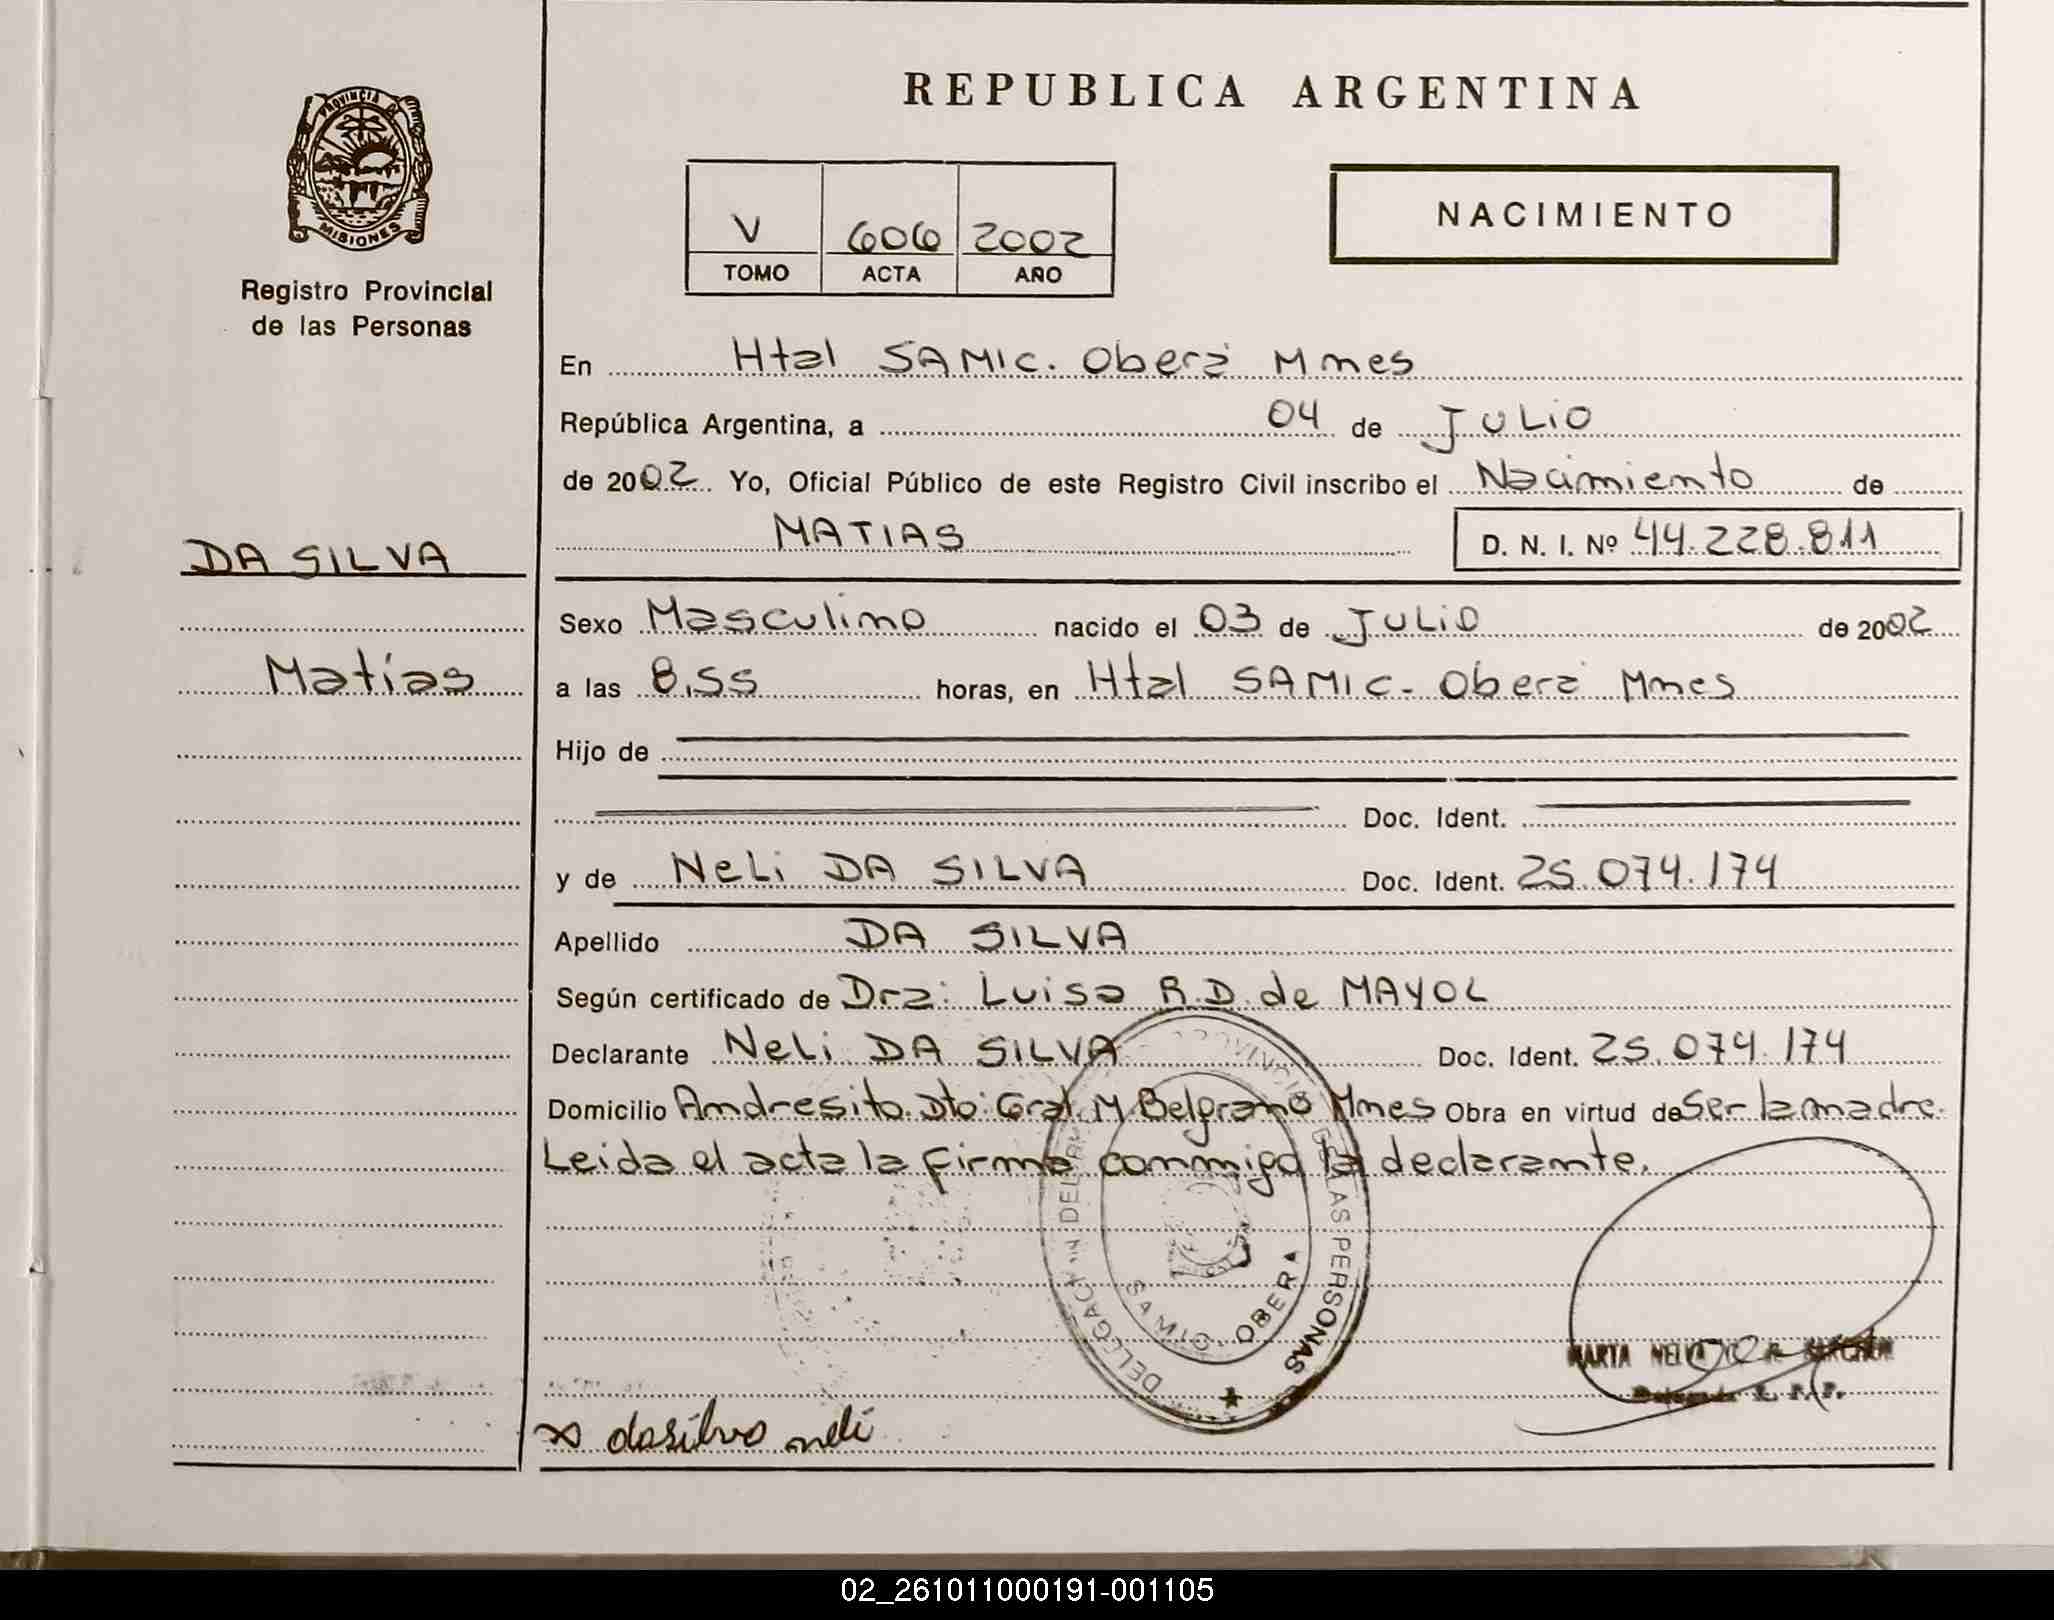 REPUBLICA ARGENTINA
PROVINCIA DE
MISIONES
Registro Provincial
de las Personas
V 606 2002
TOMO ACTA AÑO
NACIMIENTO
En Htal SAMIC. Oberá Mnes
República Argentina, a 04 de JULIO
de 2002 Yo, Oficial Público de este Registro Civil inscribo el Nacimiento de
MATIAS D. N. I. Nº 44.228.811
DA SILVA
Matías
Sexo Masculino nacido el 03 de JULIO de 2002
a las 8.55 horas, en Htal SAMIC. Oberá Mnes
Hijo de
Doc. Ident.
y de NeLi DA SILVA Doc. Ident. 25.074.174
Apellido DA SILVA
Según certificado de Dra: Luisa R.D. de MAYOL
Declarante NeLi DA SILVA Doc. Ident. 25.074.174
Domicilio Andresito. Dto: Gral. M. Belgrano Mnes Obra en virtud de Ser la madre.
Leida el acta la firma conmigo la declarante.
DE LAS PERSONAS
SAMIC OBERA
MARTA
x dasilva neli
02_261011000191-001105